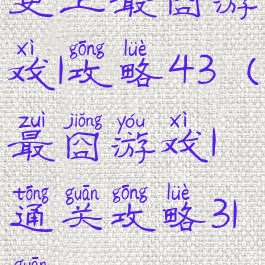 史上最囧游
xì gōng lüè
戏1攻略43（
zuì jiǒng yóu xì
最囧游戏1
tōng guān gōng lüè
通关攻略31
guān